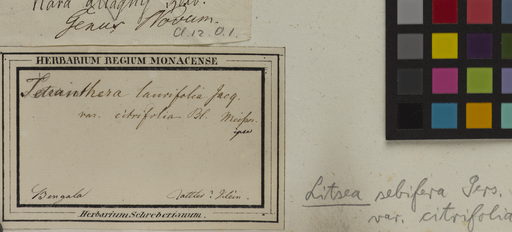 Genus Novum.
Cl. 12. O. 1.
HERBARIUM REGIUM MONACENSE
Tetranthera laurifolia Jacq.
var. citrifolia Bl.
Bengala
Herbarium Schreberianum.
Litsea sebifera Pers.
var. citrifolia